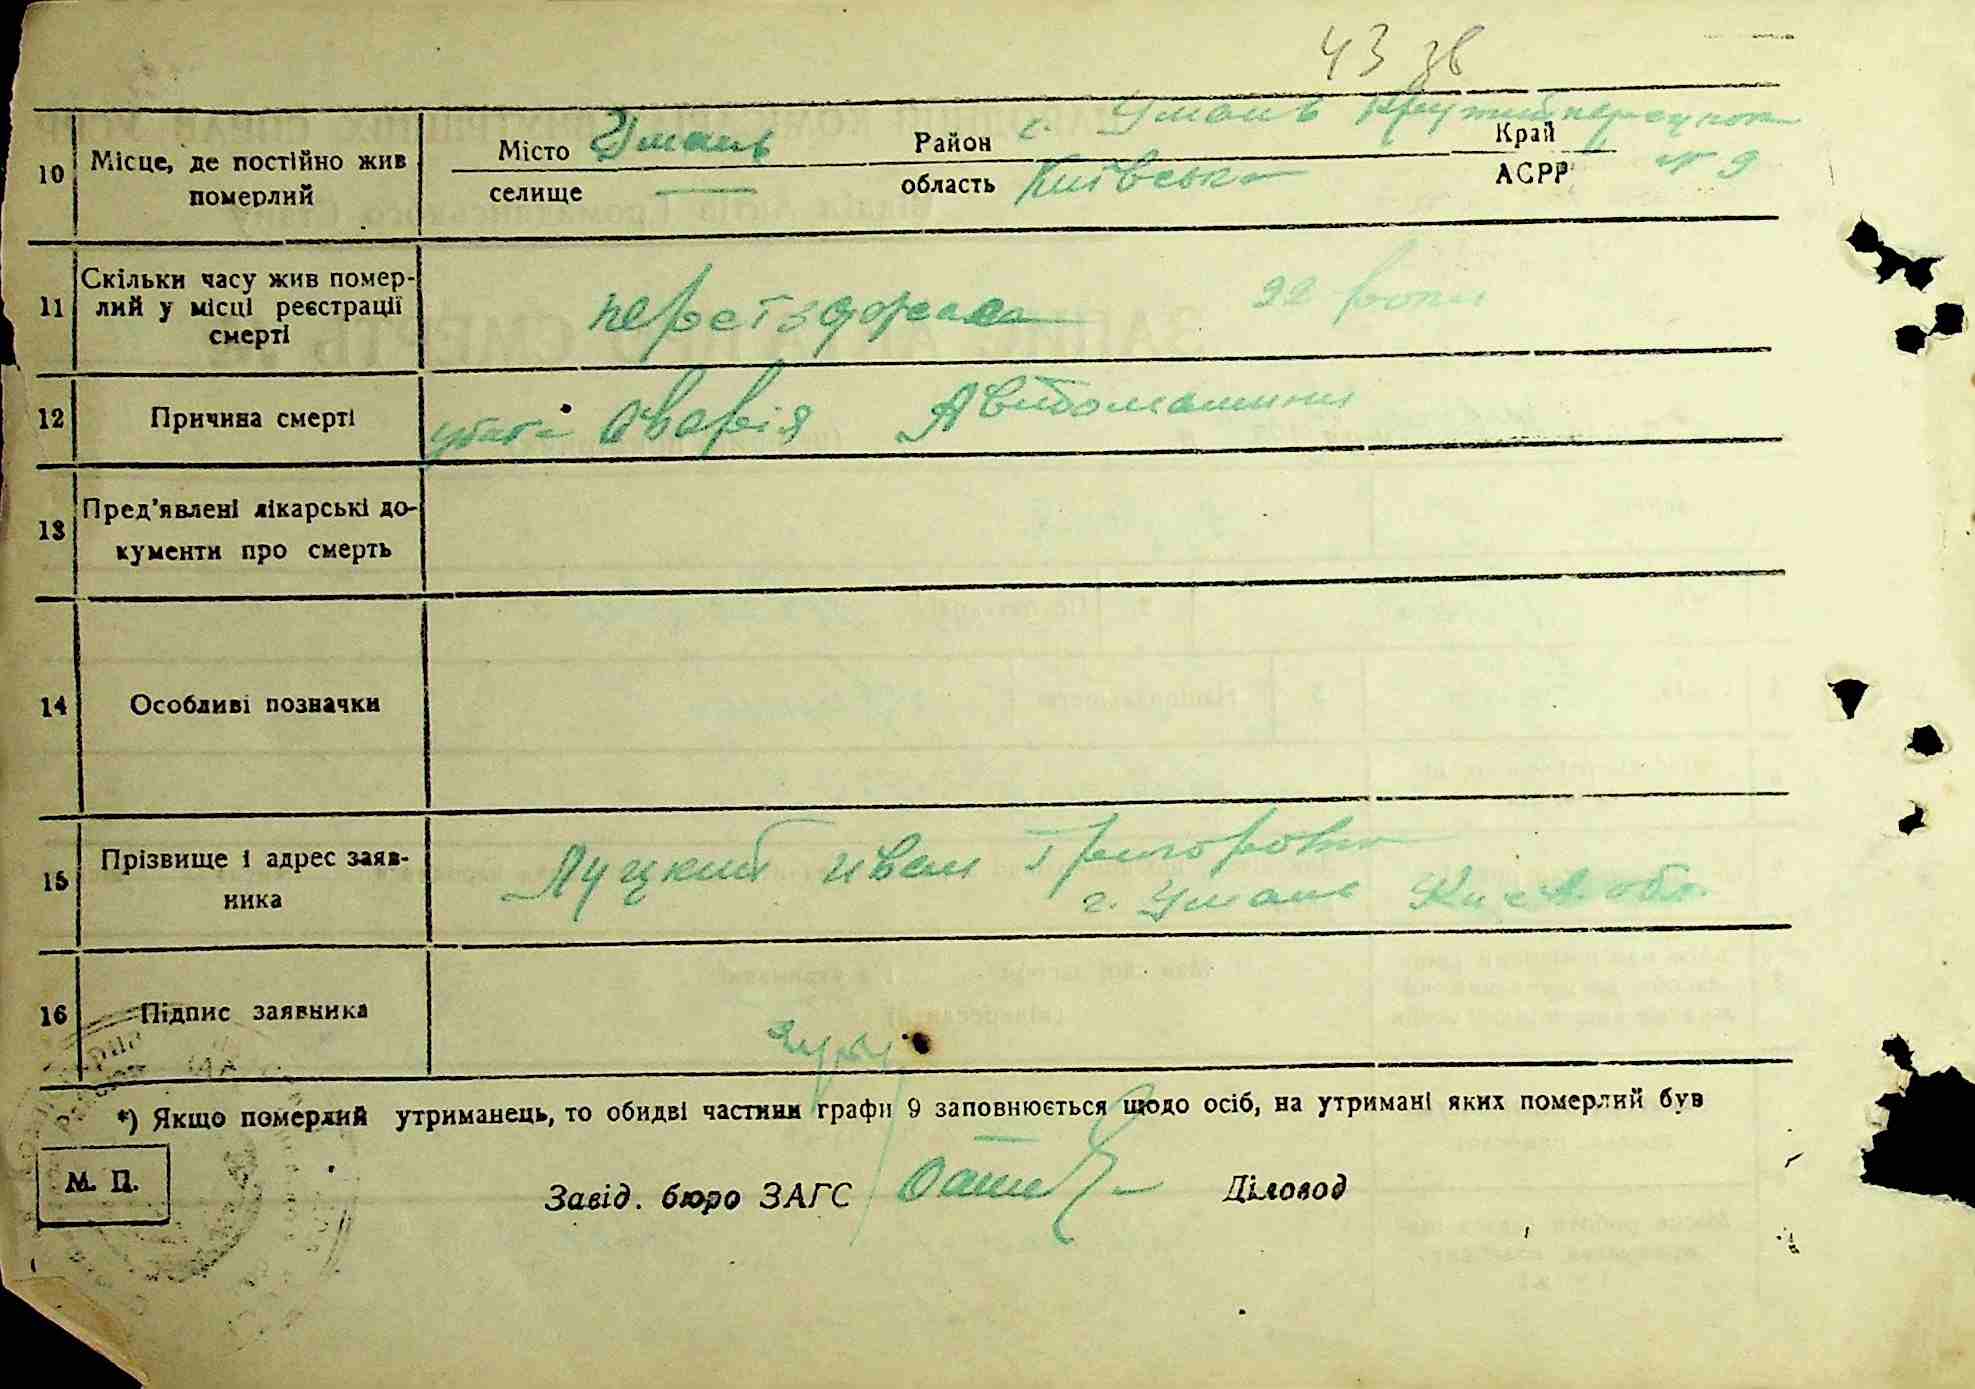 43 зв
10 Місце, де постійно жив померлий
Місто Умань Район г. Умань Крутий переулок Край
селище — область Київська АСРР № 9
11 Скільки часу жив помер-
лий у місці реєстрації
смерті
22 роки
12 Причина смерті Аварія Автомашини
13 Пред'явлені лікарські до-
кументи про смерть
14 Особливі позначки
15 Прізвище і адрес заяв-
ника
Луцкий Иван Григорович
г. Умань Киев. обл.
16 Підпис заявника
*) Якщо померлий утриманець, то обидві частини графи 9 заповнюється щодо осіб, на утримані яких померлий був
М. П.
Завід. бюро ЗАГС Діловод